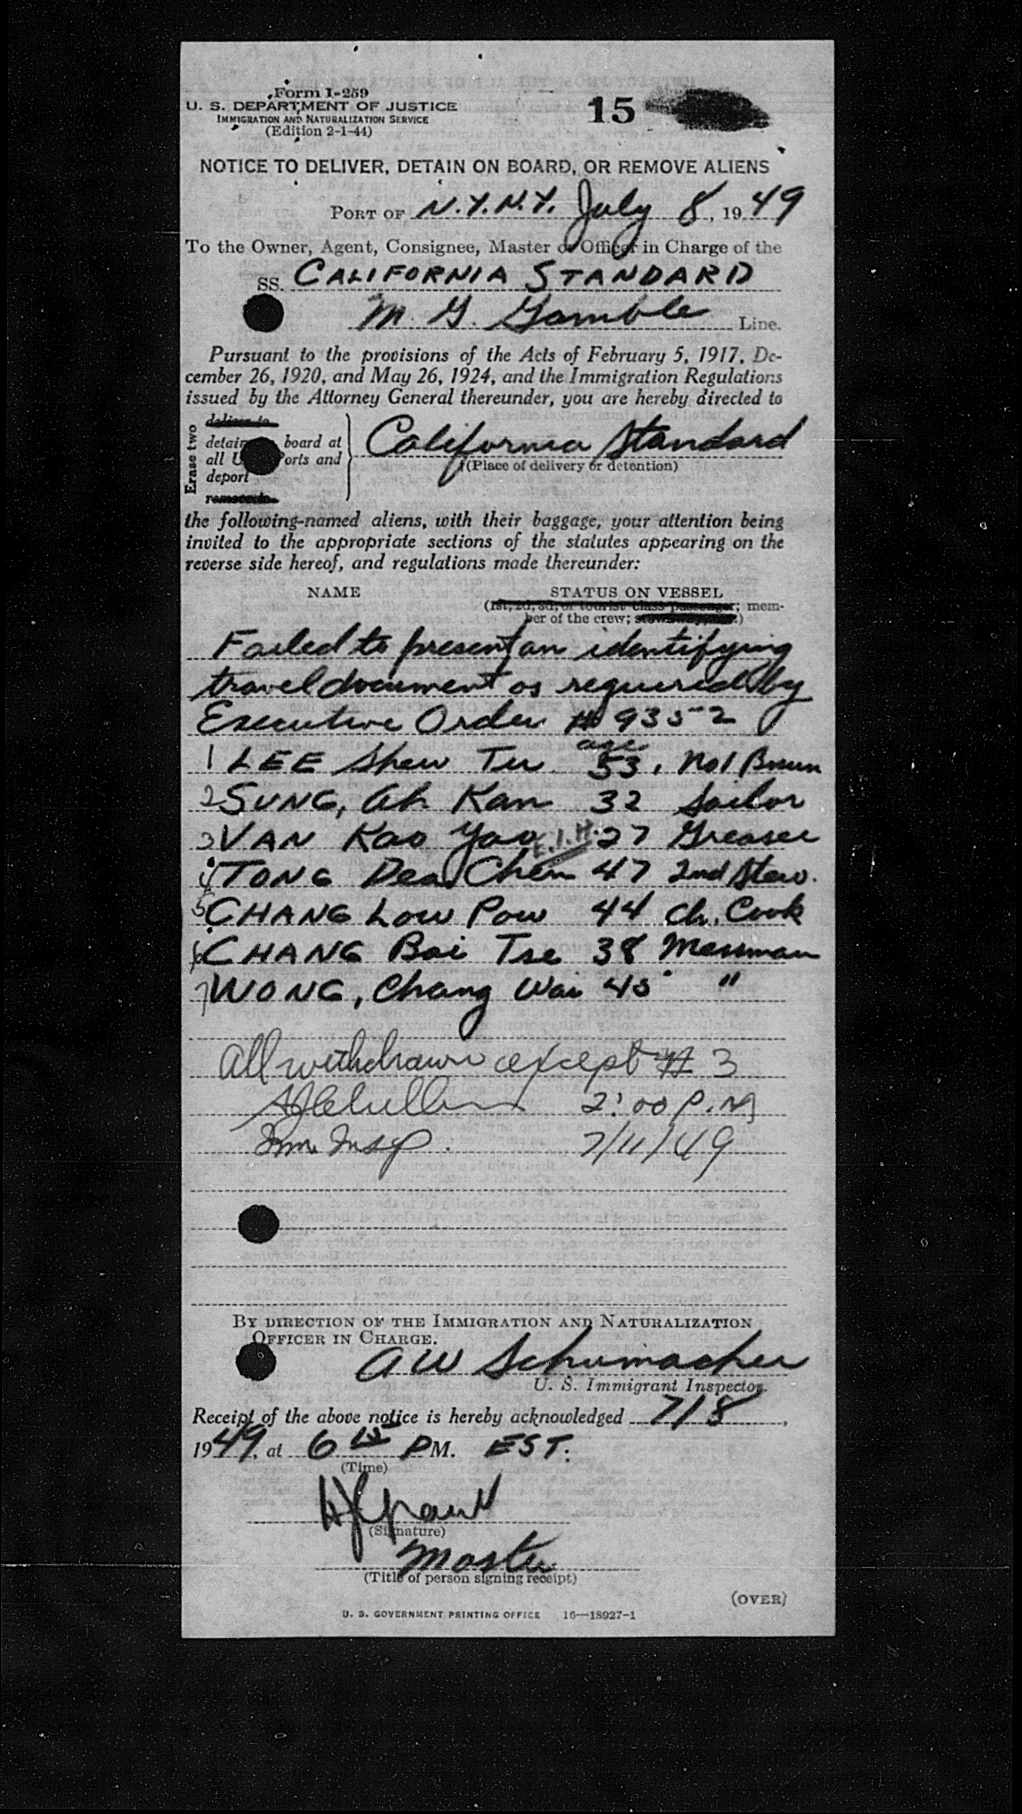 Form I-259
U. S. DEPARTMENT OF JUSTICE
IMMIGRATION AND NATURALIZATION SERVICE
(Edition 2-1-44)
15
NOTICE TO DELIVER, DETAIN ON BOARD, OR REMOVE ALIENS
PORT OF N.Y.N.Y. July 8, 1949
To the Owner, Agent, Consignee, Master or Officer in Charge of the
SS. CALIFORNIA STANDARD
M. G. Gamble Line.
Pursuant to the provisions of the Acts of February 5, 1917, De-
cember 26, 1920, and May 26, 1924, and the Immigration Regulations
issued by the Attorney General thereunder, you are hereby directed to
Erase two
deliver to
detain board at
all U orts and
deport
remove to
California Standard
(Place of delivery or detention)
the following-named aliens, with their baggage, your attention being
invited to the appropriate sections of the statutes appearing on the
reverse side hereof, and regulations made thereunder:
NAME STATUS ON VESSEL
(1st, 2d, 3d, or tourist class passenger; mem-
ber of the crew;)
Failed to present an identifying
travel document as required by
Executive Order # 9352
age
1 LEE Shew Tu 53, No1
2 SUNG, Ah Kan 32 Sailor
3 VAN Kao Yao 27 Greaser
4 TONG Dea Chem 47 2nd Stew.
5 CHANG Low Pow 44 Ch. Cook
6 CHANG Bai Tse 38 Messman
7 WONG, Chang Wai 45 "
All withdrawn except # 3
2:00 P.M
Imm Insp. 7/11/49
BY DIRECTION OF THE IMMIGRATION AND NATURALIZATION
OFFICER IN CHARGE.
A W Schumacher
U. S. Immigrant Inspector.
Receipt of the above notice is hereby acknowledged 7/8,
1949, at 6 15 PM. EST.
(Time)
(Signature)
Master
(Title of person signing receipt)
(OVER)
U. S. GOVERNMENT PRINTING OFFICE 16—18927-1